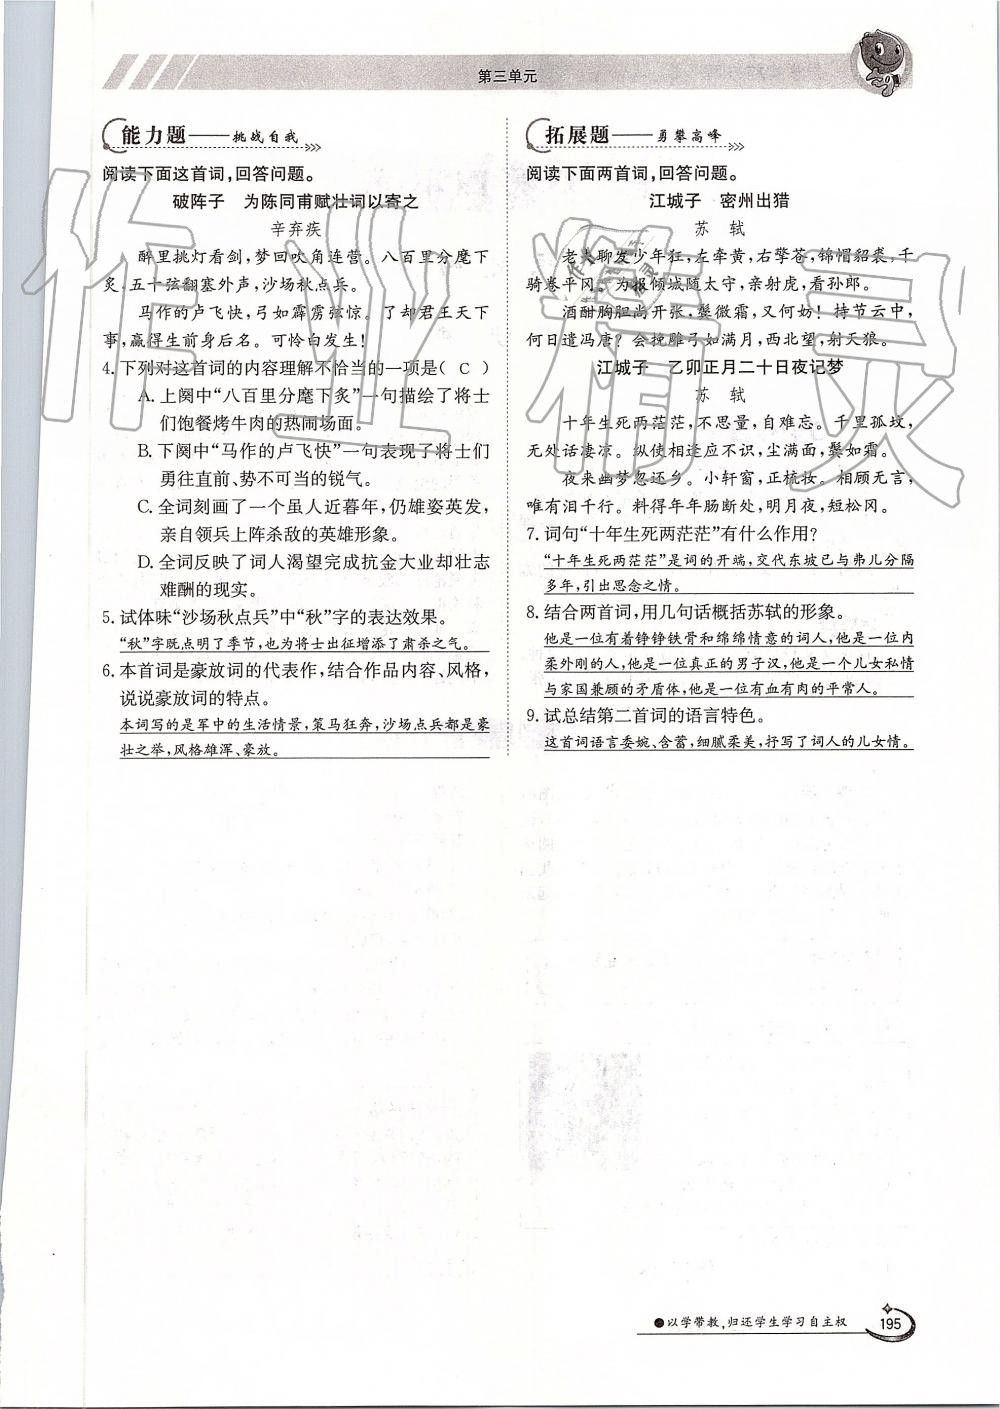 第三单元
能力题——挑战自我
阅读下面这首词,回答问题。
破阵子 为陈同甫赋壮词以寄之
辛弃疾
醉里挑灯看剑,梦回吹角连营。八百里分麾下
炙,五十弦翻塞外声,沙场秋点兵。
马作的卢飞快,弓如霹雳弦惊。了却君王天下
事,赢得生前身后名。可怜白发生!
4. 下列对这首词的内容理解不恰当的一项是( C )
A. 上阕中“八百里分麾下炙”一句描绘了将士
们饱餐烤牛肉的热闹场面。
B. 下阕中“马作的卢飞快”一句表现了将士们
勇往直前、势不可当的锐气。
C. 全词刻画了一个虽人近暮年,仍雄姿英发,
亲自领兵上阵杀敌的英雄形象。
D. 全词反映了词人渴望完成抗金大业却壮志
难酬的现实。
5. 试体味“沙场秋点兵”中“秋”字的表达效果。
“秋”字既点明了季节,也为将士出征增添了肃杀之气。
6. 本首词是豪放词的代表作,结合作品内容、风格,
说说豪放词的特点。
本词写的是军中的生活情景,策马狂奔,沙场点兵都是豪
壮之举,风格雄浑、豪放。
拓展题——勇攀高峰
阅读下面两首词,回答问题。
江城子 密州出猎
苏 轼
老夫聊发少年狂,左牵黄,右擎苍,锦帽貂裘,千
骑卷平冈。为报倾城随太守,亲射虎,看孙郎。
酒酣胸胆尚开张,鬓微霜,又何妨!持节云中,
何日遣冯唐?会挽雕弓如满月,西北望,射天狼。
江城子 乙卯正月二十日夜记梦
苏 轼
十年生死两茫茫,不思量,自难忘。千里孤坟,
无处话凄凉。纵使相逢应不识,尘满面,鬓如霜。
夜来幽梦忽还乡。小轩窗,正梳妆。相顾无言,
唯有泪千行。料得年年肠断处,明月夜,短松冈。
7. 词句“十年生死两茫茫”有什么作用?
“十年生死两茫茫”是词的开端,交代东坡已与弗儿分隔
多年,引出思念之情。
8. 结合两首词,用几句话概括苏轼的形象。
他是一位有着铮铮铁骨和绵绵情意的词人,他是一位内
柔外刚的人,他是一位真正的男子汉,他是一个儿女私情
与家国兼顾的矛盾体,他是一位有血有肉的平常人。
9. 试总结第二首词的语言特色。
这首词语言委婉、含蓄,细腻柔美,抒写了词人的儿女情。
●以学带教,归还学生学习自主权
195
作业精灵